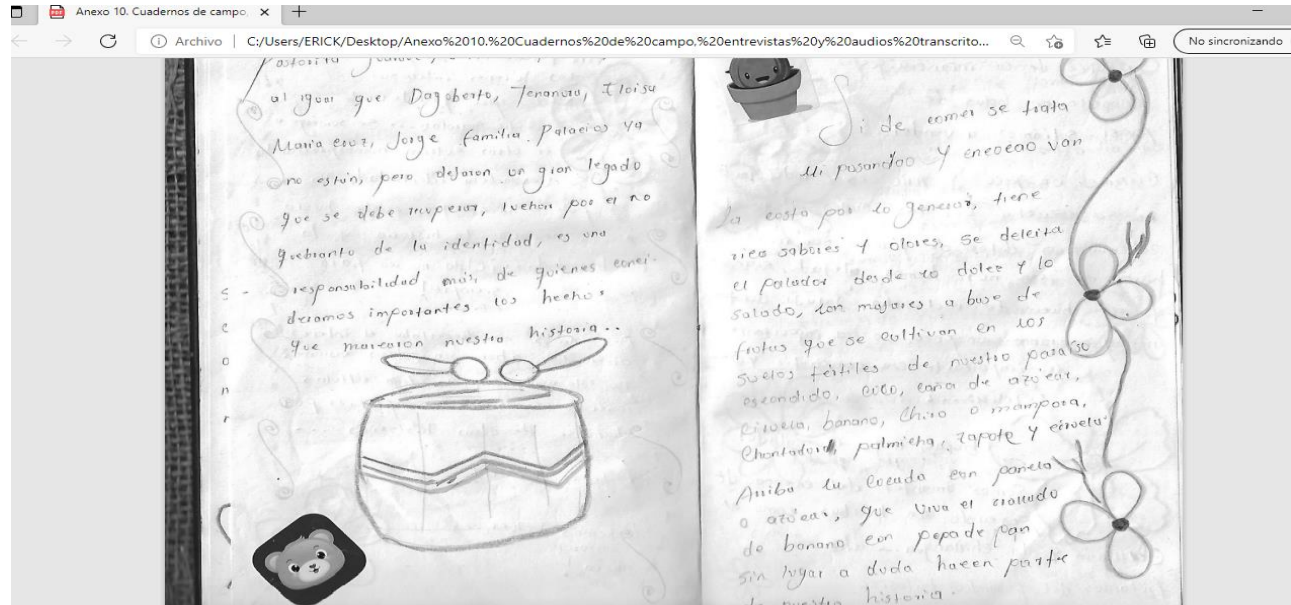 Anexo 10. Cuadernos de campo,
Archivo C:/Users/ERICK/Desktop/Anexo%2010.%20Cuadernos%20de%20campo,%20entrevistas%20y%20audios%20transcrito...
No sincronizando
al igual que Dagoberto,
Maria cruz, Jorge familia. Palacios ya
no están, pero dejaron un gran legado
que se debe recuperar, luchar por el no
quebranto de la identidad, es una
responsabilidad más, de quienes consi-
deramos importantes los hechos
que marcaron nuestra historia..
Si de comer se trata
Mi pusandao y encocao van
La costa por lo general, tiene
ricos sabores y olores, se deleita
el paladar desde lo dolce y lo
salado, con majares a base de
frutas que se cultivan en los
suelos fértiles de nuestro paraíso
escondido, coco, caña de azúcar,
ciruela, banano, chiro o mampora,
Chontaduro, palmicha, zapote y ciruela.
Arriba la cocada con panela
o azúcar, que viva el
de banano con pepa de pan
sin lugar a duda hacen parte
nuestra historia.